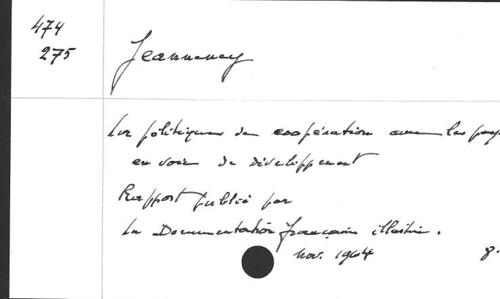 474
275
Jeanneney
La politique de coopération avec les pays
en voie de développement
Rapport publié par
La Documentation française illustrée.
nov. 1964
8.